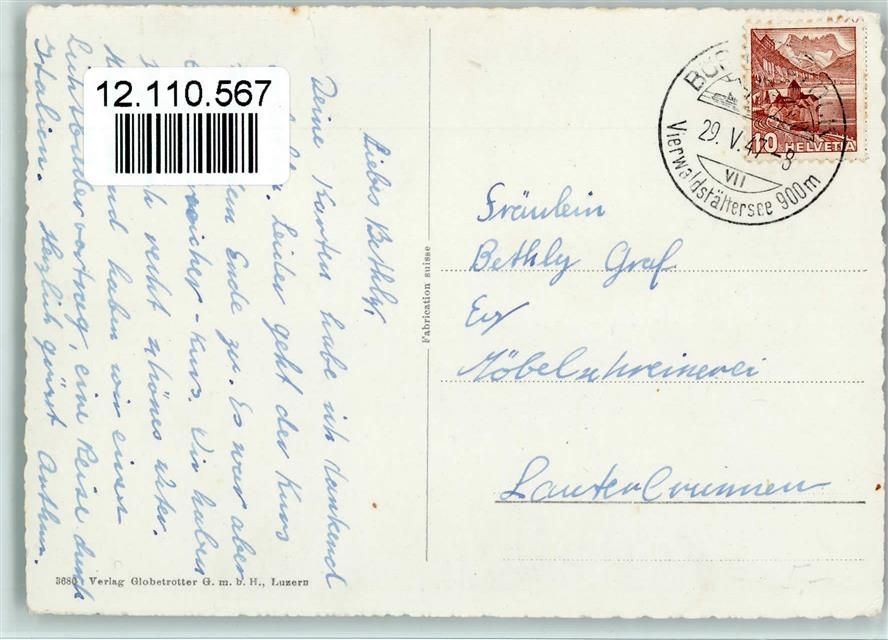 12.110.567
Liebes Bethly,
Deine Karten habe ich dankend
Leider geht der Kurs
dem Ende zu. Es war aber
Kurs. Wir haben
recht schönes Wetter.
und haben wir einen
Lichtbildervortrag, eine Reise durch
Italien. Herzlich grüsst Arthur.
3680 Verlag Globetrotter G. m. b. H., Luzern
Fabrication suisse
BÜR
29. V. 47 -8
VII
Vierwaldstättersee 900m
10 HELVETIA
Fräulein
Bethly Graf
Möbelschreinerei
Lauterbrunnen